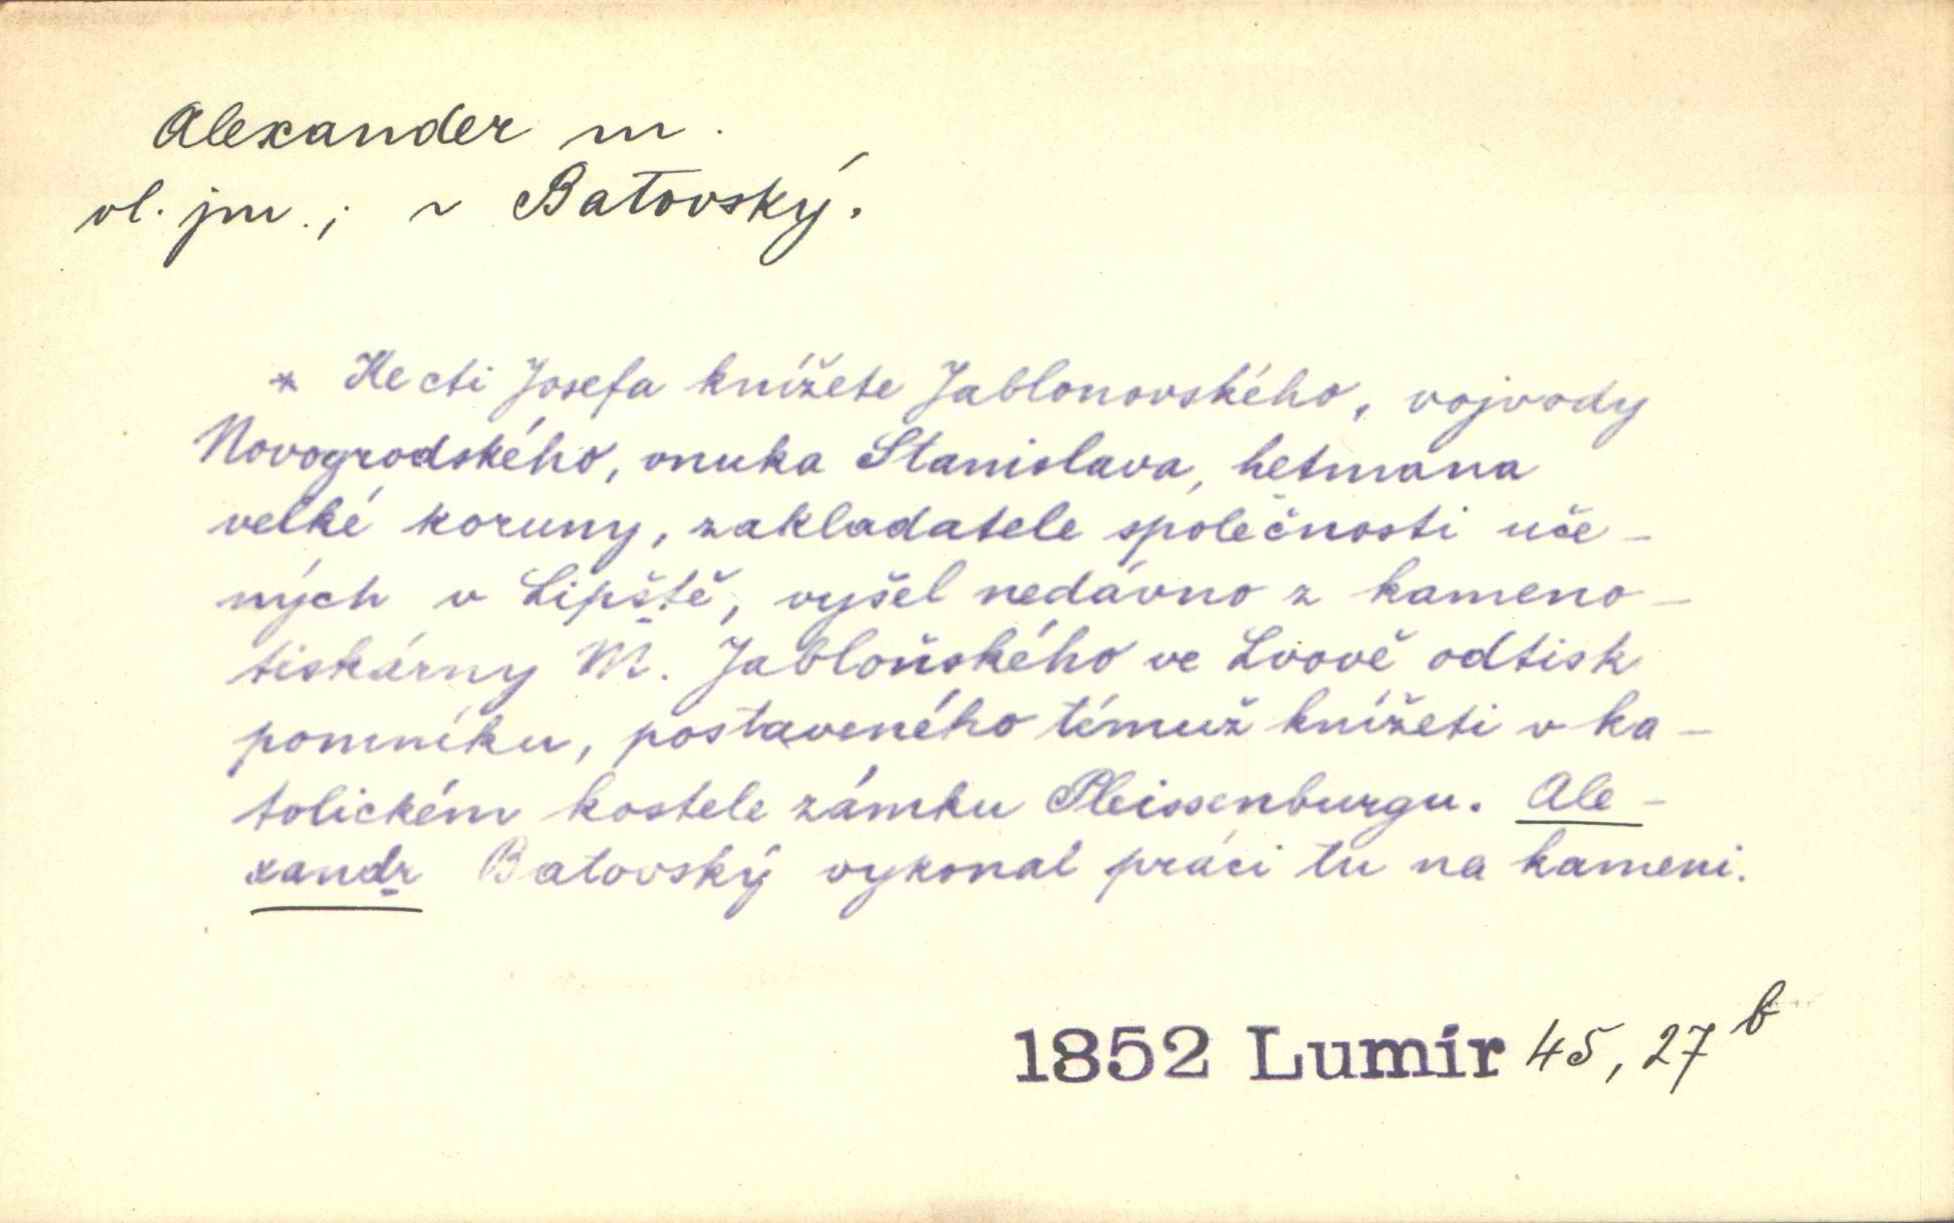 Alexander m.
vl. jm.; ~ Batovský.
* Ke cti Josefa knížete Jablonovského, vojvody
Novogrodského, vnuka Stanislava, hetmana
velké koruny, zakladatele společnosti uče-
ných v Lipště, vyšel nedávno z kameno-
tiskárny M. Jabloňského ve Lvově odtisk
pomníku, postaveného témuž knížeti v ka-
tolickém kostele zámku Pleissenburgu. Ale-
xandr Batovský vykonal práci tu na kameni.
1852 Lumír 45, 27 b